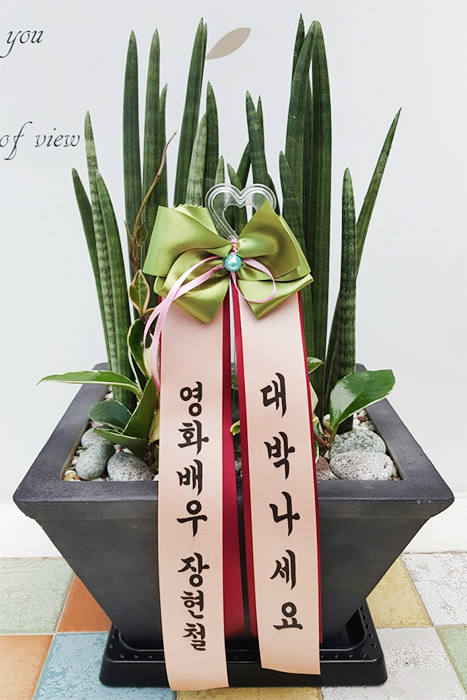 you
of view
대박나세요
영화배우 장현철